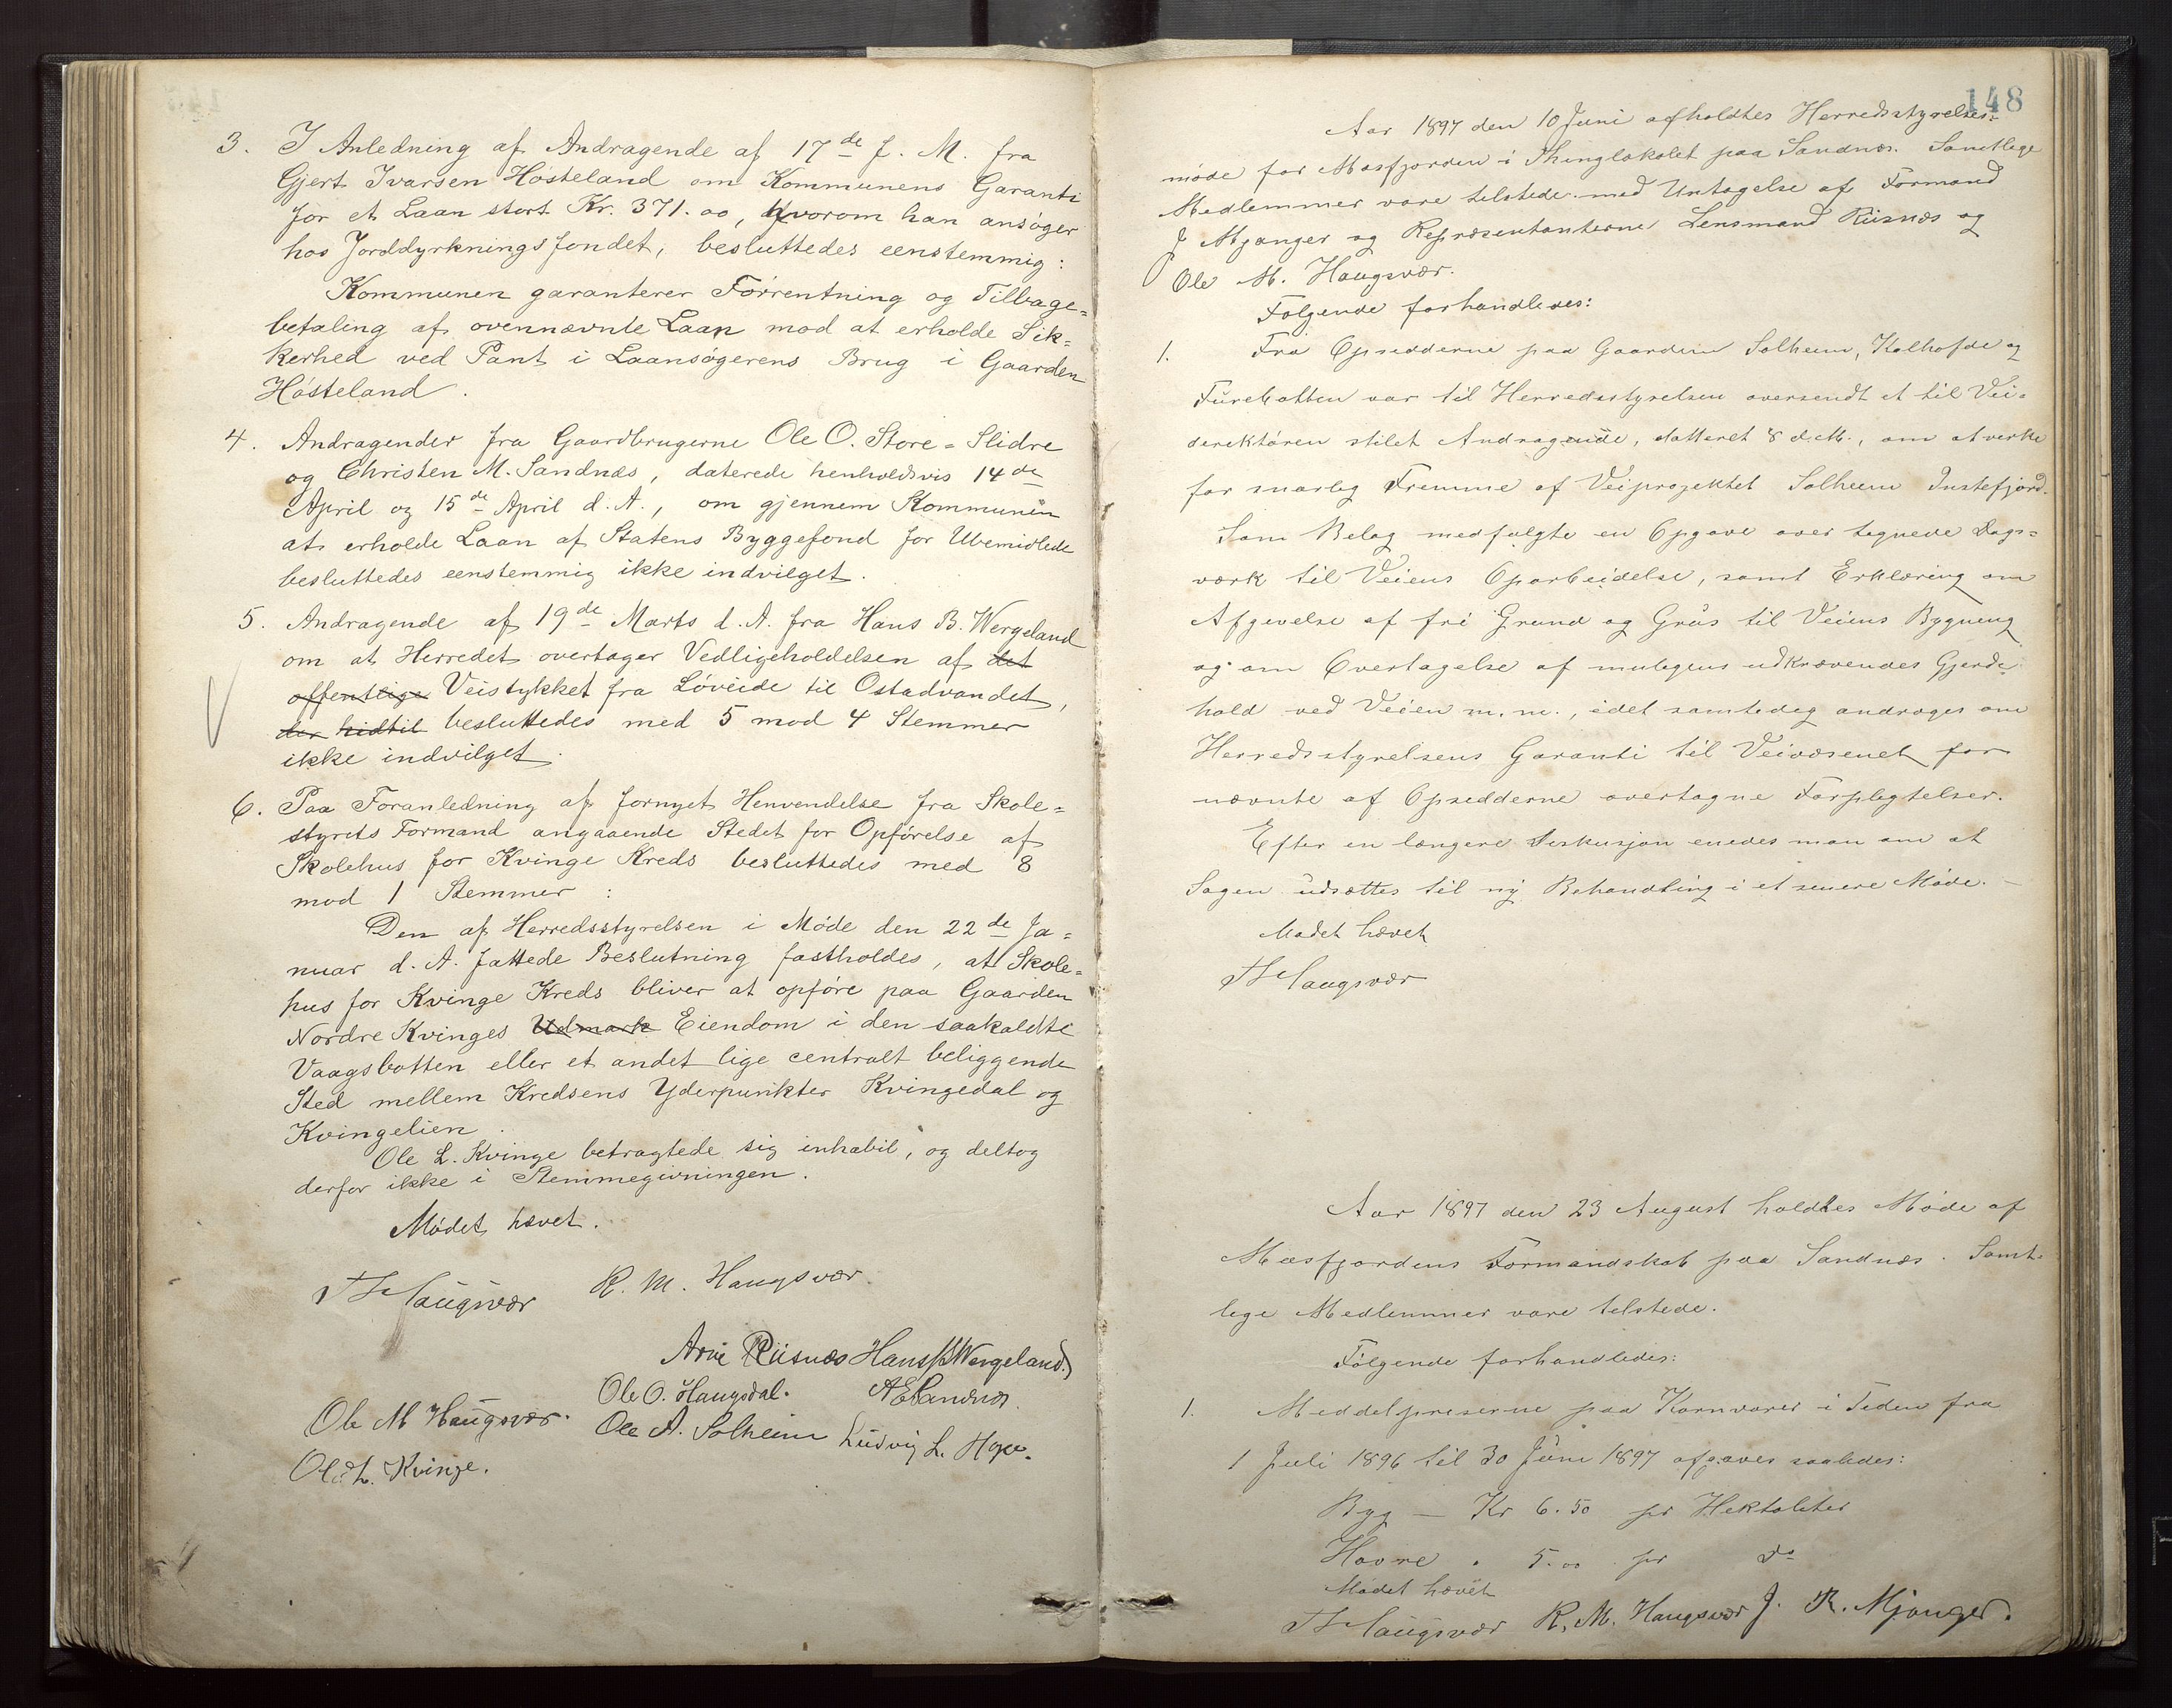 3. I Anledning af Andragende af 17de f. M. fra
Gjert Ivarsen Hösteland om Kommunens Garanti
for et Laan stort Kr. 371.00, hvorom han ansøger
hos Jorddyrkningsfondet, besluttedes eenstemmig:
Kommunen garanterer Forrentning og Tilbage=
betaling af ovennævnte Laan mod at erholde Sik=
kerhed ved Pant i Laansøgerens Brug i Gaarden
Hösteland.
4. Andragender fra Gaardbrugerne Ole O. Store=Slidre
og Christen M. Sandnæs, daterede henholdsvis 14de
April og 15de April d. A., om gjennem Kommunen
at erholde Laan af Statens Byggefond for Ubemidlede
besluttedes eenstemmig ikke indvilget.
5. Andragende af 19de Marts d. A. fra Hans B. Wergeland
om at Herredet overtager Vedligeholdelsen af det
offentlige Veistykket fra Løveide til Ostadvandet,
der hidtil besluttedes med 5 mod 4 Stemmer
ikke indvilget.
6. Paa Foranledning af fornyet Henvendelse fra Skole=
styrets Formand angaaende Stedet for Opførelse af
Skolehus for Kvinge Kreds besluttedes med 8
mod 1 Stemmer:
Den af Herredsstyrelsen i Møde den 22de Ja=
nuar d. A. fattede Beslutning fastholdes, at Skole=
hus for Kvinge Kreds bliver at opføre paa Gaarden
Nordre Kvinges Udmark Eiendom i den saakaldte
Vaagsbotten eller et andet lige centralt beliggende
Sted mellem Kredsens Yderpunkter Kvingedal og
Kvingelien.
Ole L. Kvinge betragtede sig inhabil, og deltog
derfor ikke i Stemmegivningen.
Mødet hævet.
Haugsvær R. M. Haugsvær.
Arne Riisnæs Hans B Wergeland.
Ole O. Haugsdal. A E Sandnæs
Ole M Haugsvær. Ole A. Solheim Ludvig L. Hope.
Ole L. Kvinge.
148
Aar 1897 den 10 Juni afholdtes Herredsstyrelses=
møde for Masfjorden i Thinglokalet paa Sandnæs. Samtlige
Medlemmer vare tilstede med Untagelse af Formand
J Mjanger og Repræsentanterne Lensmand Riisnæs og
Ole M. Haugsvær.
Følgende forhandledes:
1. Fra Opsidderne paa Gaardene Solheim, Kalhofde og
Furebotten var til Herredsstyrelsen oversendt et til Vei=
derektøren stilet Andragende, datteret 8 d. M., om at verke
for snarlig Fremme af Veiprojektet Solheim Instefjord.
Som Belag medfulgte en Opgave over tegnede Dags=
værk til Veiens Oparbeidelse, samt Erklæring om
Afgivelse af fri Grund og Grus til Veiens Bygning
og om Overtagelse af muligens udkrævendes Gjerde=
hold ved Veien m. m., idet samtidig andrages om
Herredsstyrelsens Garanti til Veivæsenet for
nævnte af Opsidderne overtagne Forpligtelser.
Efter en længere Diskusjon enedes man om at
Sagen udsættes til ny Behandling i et senere Møde.
Mødet hævet
Haugsvær
Aar 1897 den 23 August holdtes Møde af
Masfjordens Formandskab paa Sandnæs. Samt=
lige Medlemmer vare tilstede.
Følgende forhandledes:
1. Meddelpriserne paa Kornvarer i Tiden fra
1 Juli 1896 til 30 Juni 1897 afgaves saaledes:
Byg — Kr 6.50 pr Hektoliter
Havre " 5.00 pr do
Mødet hævet
Haugsvær R. M. Haugsvær J. R. Mjanger.